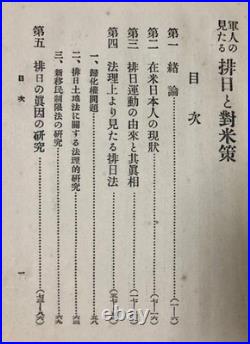 軍人の見たる 排日と對米策
目次
第一 緒論……(一—六)
第二 在米日本人の現狀……(七—一六)
第三 排日運動の由來と其眞相
第四 法理上より見たる排日法
一、歸化權問題……五八
二、排日土地法に關する法理的研究……六二
三、新移民制限法の研究……六九
第五 排日の眞因の研究
目次
一